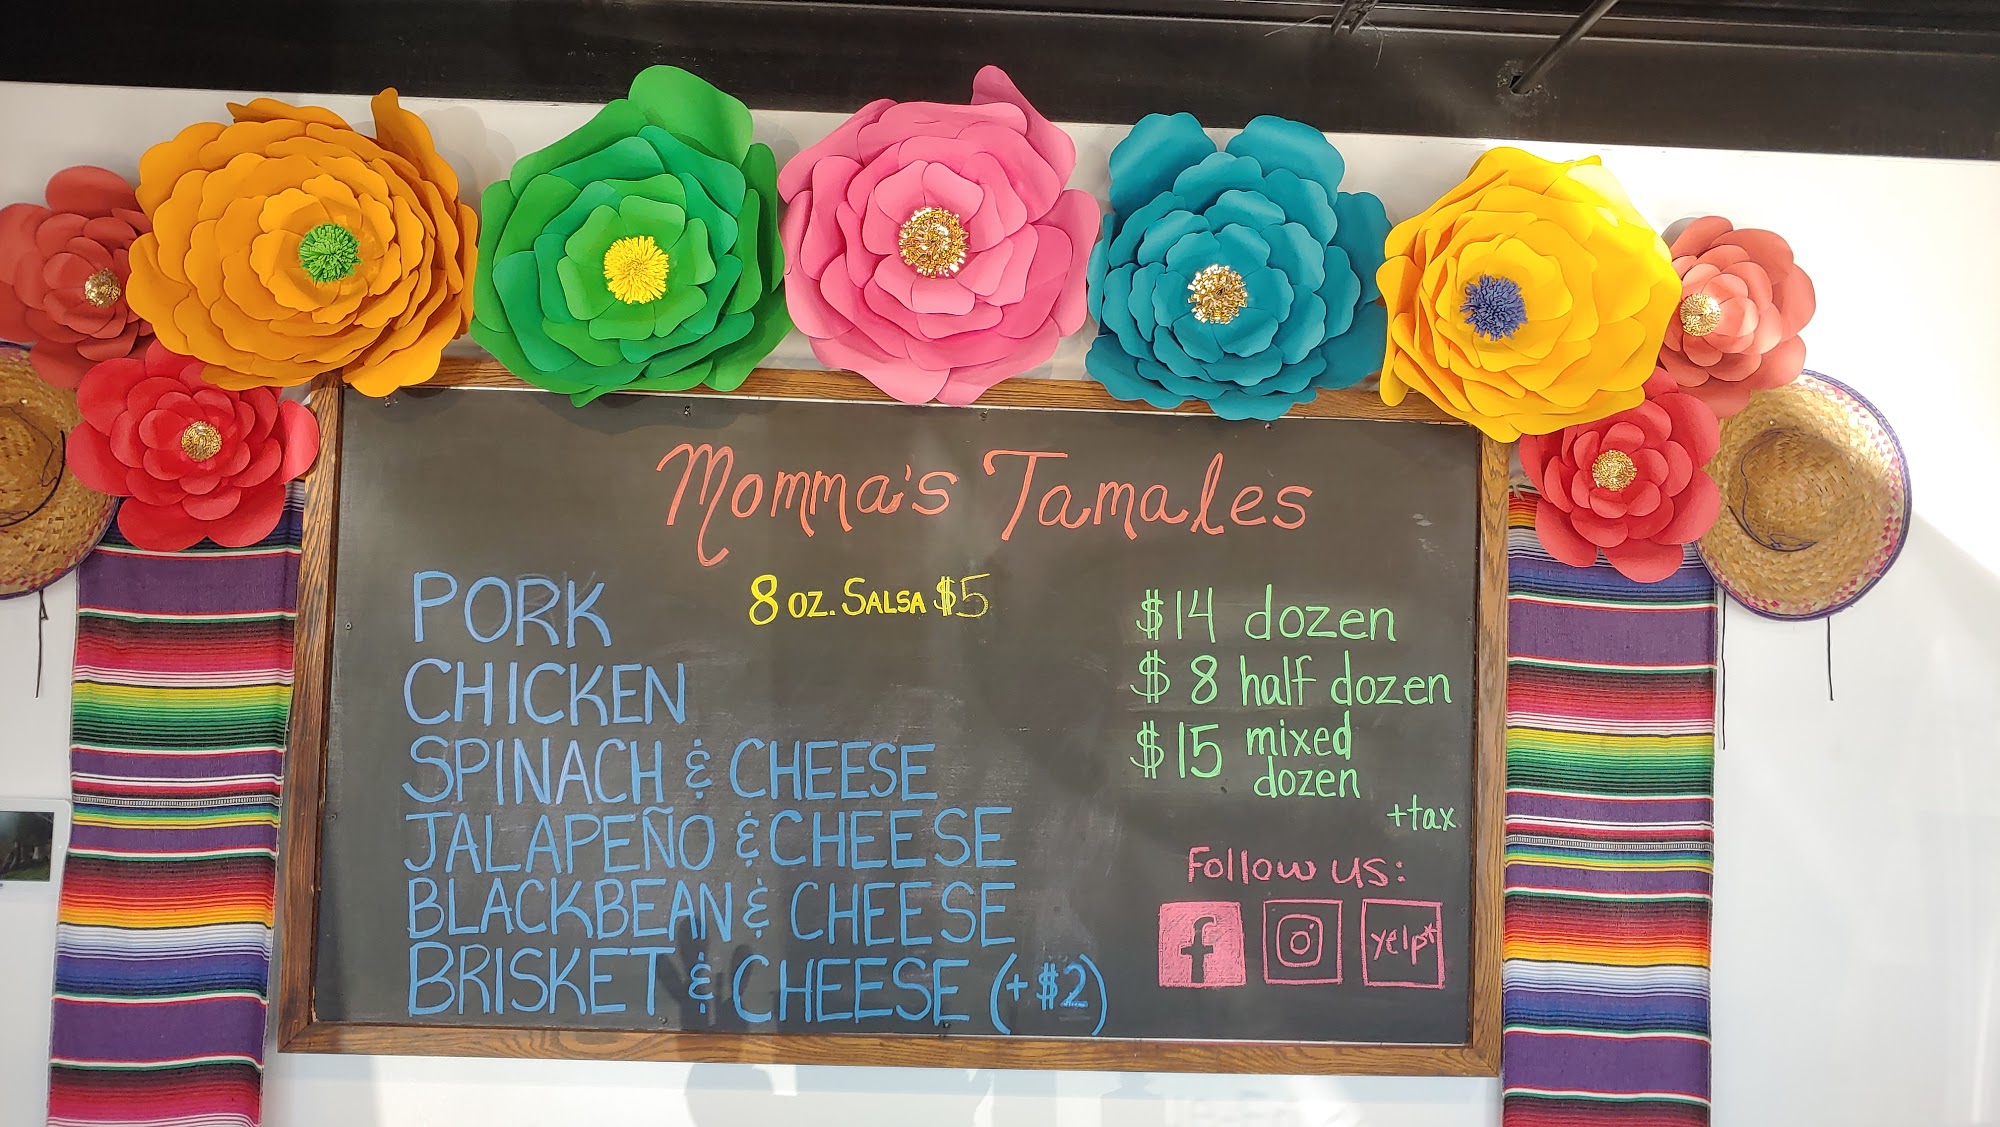 Momma's Tamales
PORK
CHICKEN
SPINACH & CHEESE
JALAPEÑO & CHEESE
BLACKBEAN & CHEESE
BRISKET & CHEESE (+ $2)
8 OZ. SALSA $5
$14 dozen
$8 half dozen
$15 mixed
dozen
+tax
Follow us:
f
yelp